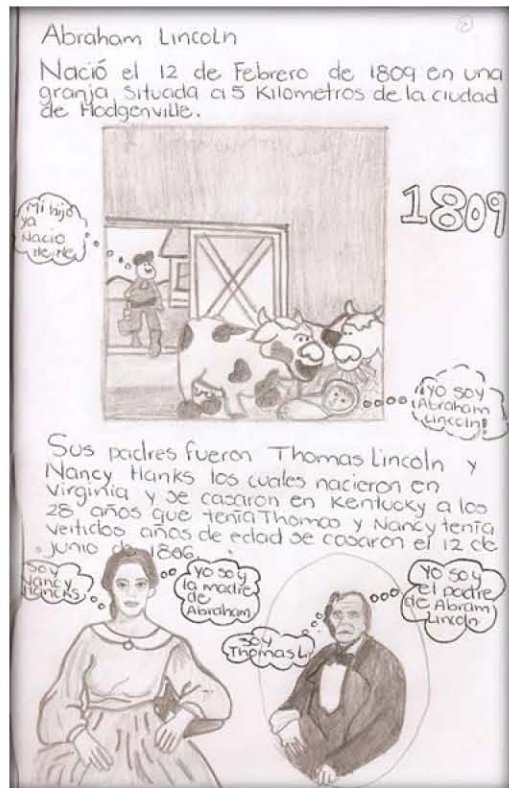 2
Abraham Lincoln
Nació el 12 de Febrero de 1809 en una
granja, situada a 5 Kilometros de la ciudad
de Hodgenville.
1809
Mi hijo
ya
Nacio
He, He,
¡¡Yo soy
Abraham
Lincoln!!
Sus padres fueron Thomas Lincoln y
Nancy Hanks los cuales nacieron en
Virginia y se casaron en Kentucky a los
28 años que tenia Thomas y Nancy tenía
veitidos años de edad se casaron el 12 de
junio de 1806.
Soy
Nancy
Hancks
Yo soy
la madre
de
Abraham
Soy
Thomas Li
Yo soy
el padre
de Abram
Lincoln